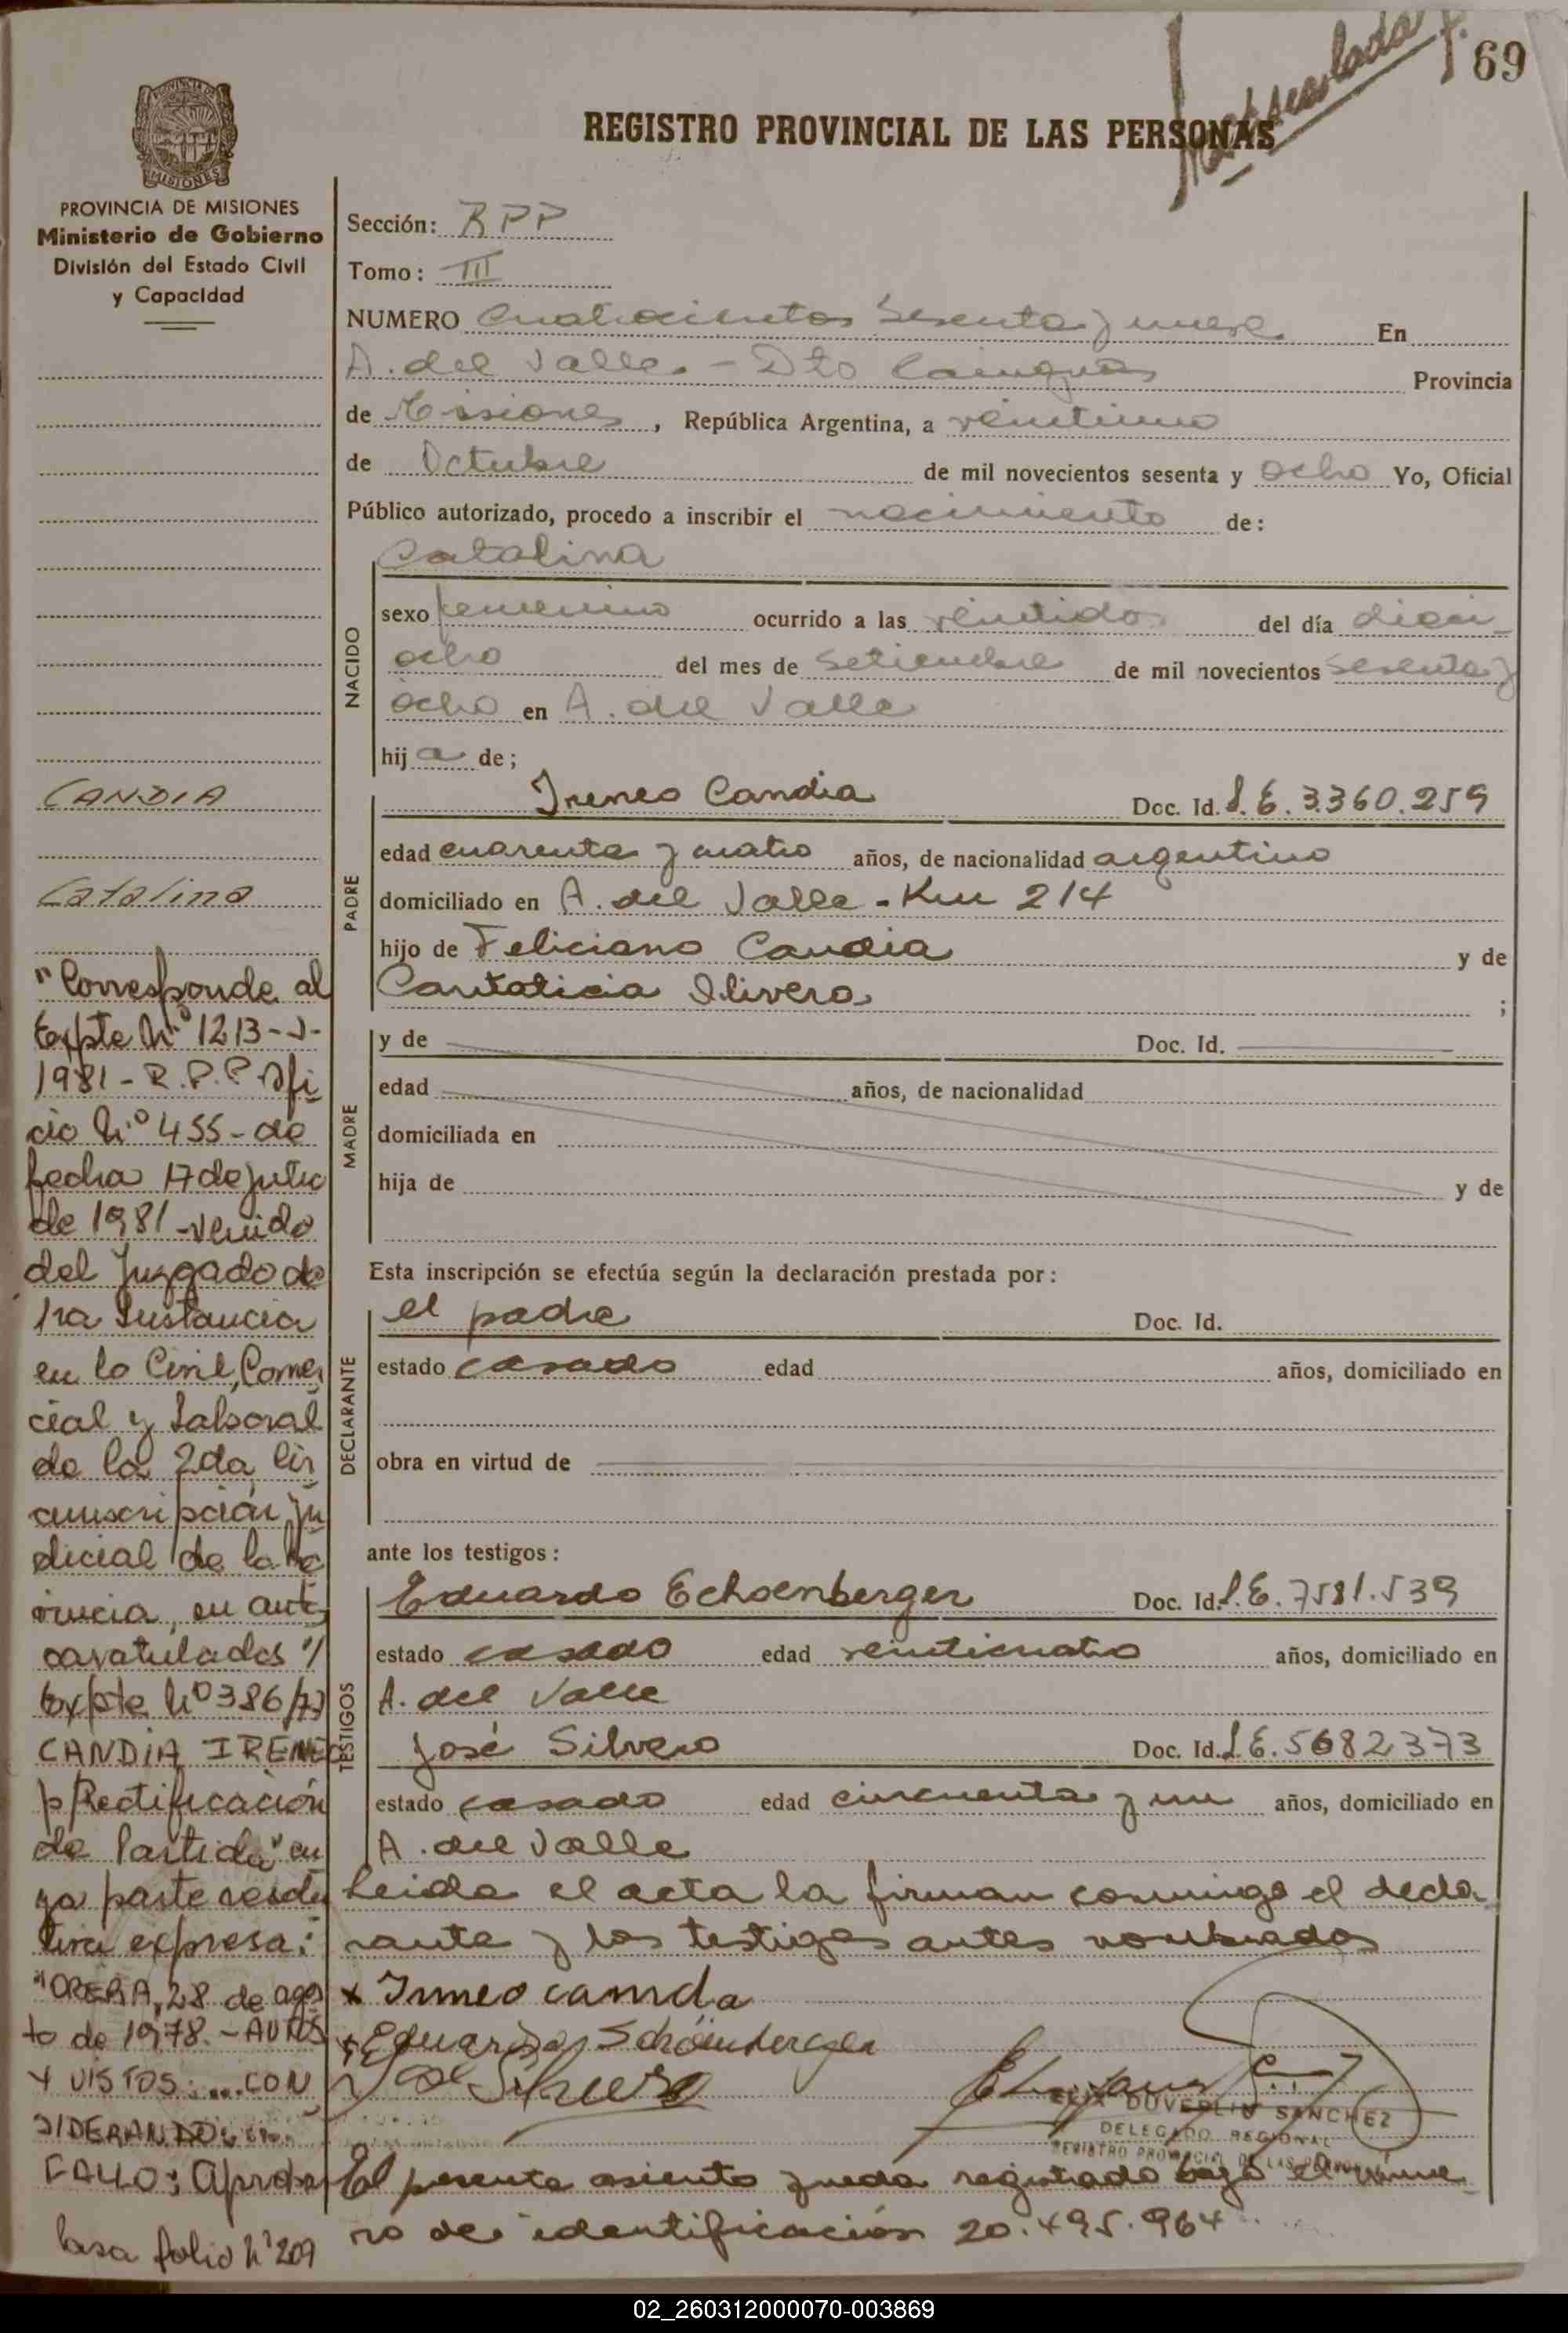 69
REGISTRO PROVINCIAL DE LAS PERSONAS
PROVINCIA DE MISIONES
Ministerio de Gobierno
División del Estado Civil
y Capacidad
Sección: RPP
Tomo: III
NUMERO Cuatrocientos Sesenta y nueve En
A. del Valle - Dto Cainguas Provincia
de Misiones, República Argentina, a veintiuno
de Octubre de mil novecientos sesenta y ocho Yo, Oficial
Público autorizado, procedo a inscribir el nacimiento de:
Catalina
NACIDO
sexo femenino ocurrido a las veintidos del día dieci-
ocho del mes de Setiembre de mil novecientos sesenta y
ocho en A. del Valle
hija de;
PADRE
Ireneo Candia Doc. Id. L.E. 3.360.259
edad cuarenta y cuatro años, de nacionalidad argentino
domiciliado en A. del Valle - Km 214
hijo de Feliciano Candia y de
Cantalicia Olivera ;
MADRE
y de Doc. Id.
edad años, de nacionalidad
domiciliada en
hija de y de
Esta inscripción se efectúa según la declaración prestada por:
DECLARANTE
el padre Doc. Id.
estado casado edad años, domiciliado en
obra en virtud de
ante los testigos:
TESTIGOS
Eduardo Echoenberger Doc. Id. L.E. 7581.539
estado casado edad veinticuatro años, domiciliado en
A. del Valle
José Silvero Doc. Id. L.E. 5682373
estado casado edad cincuenta y un años, domiciliado en
A. del Valle
Leida el acta la firman conmigo el decla-
rante y los testigos antes nombrados
x Irineo camda
x Eduardo Schöenberger
José Silvero
FELIX DUVERLIN SANCHEZ
DELEGADO REGIONAL
REGISTRO PROVINCIAL DE LAS PERSONAS
El presente asiento queda registrado bajo el núme-
ro de identificación 20.495.964
CANDIA
Catalina
"Corresponde al
Expte Nº 1213-J-
1981 - R.P.P. Ofi
cio Nº 455 - de
fecha 17 de julio
de 1981 - venido
del Juzgado de
1ra Instancia
en lo Civil, Comer
cial y Laboral
de la 2da Cir
cunscripción Ju
dicial de la Pro
vincia, en autos
caratulados "/
Expte Nº 386/77
CANDIA IRENEO
p/Rectificación
de Partida" cu
ya parte resolu
tiva expresa:
"OBERA, 28 de agos
to de 1978. - AUTOS
Y VISTOS: ... CON
SIDERANDO: ...
FALLO: Aproba
Pasa folio Nº 209
02_260312000070-003869